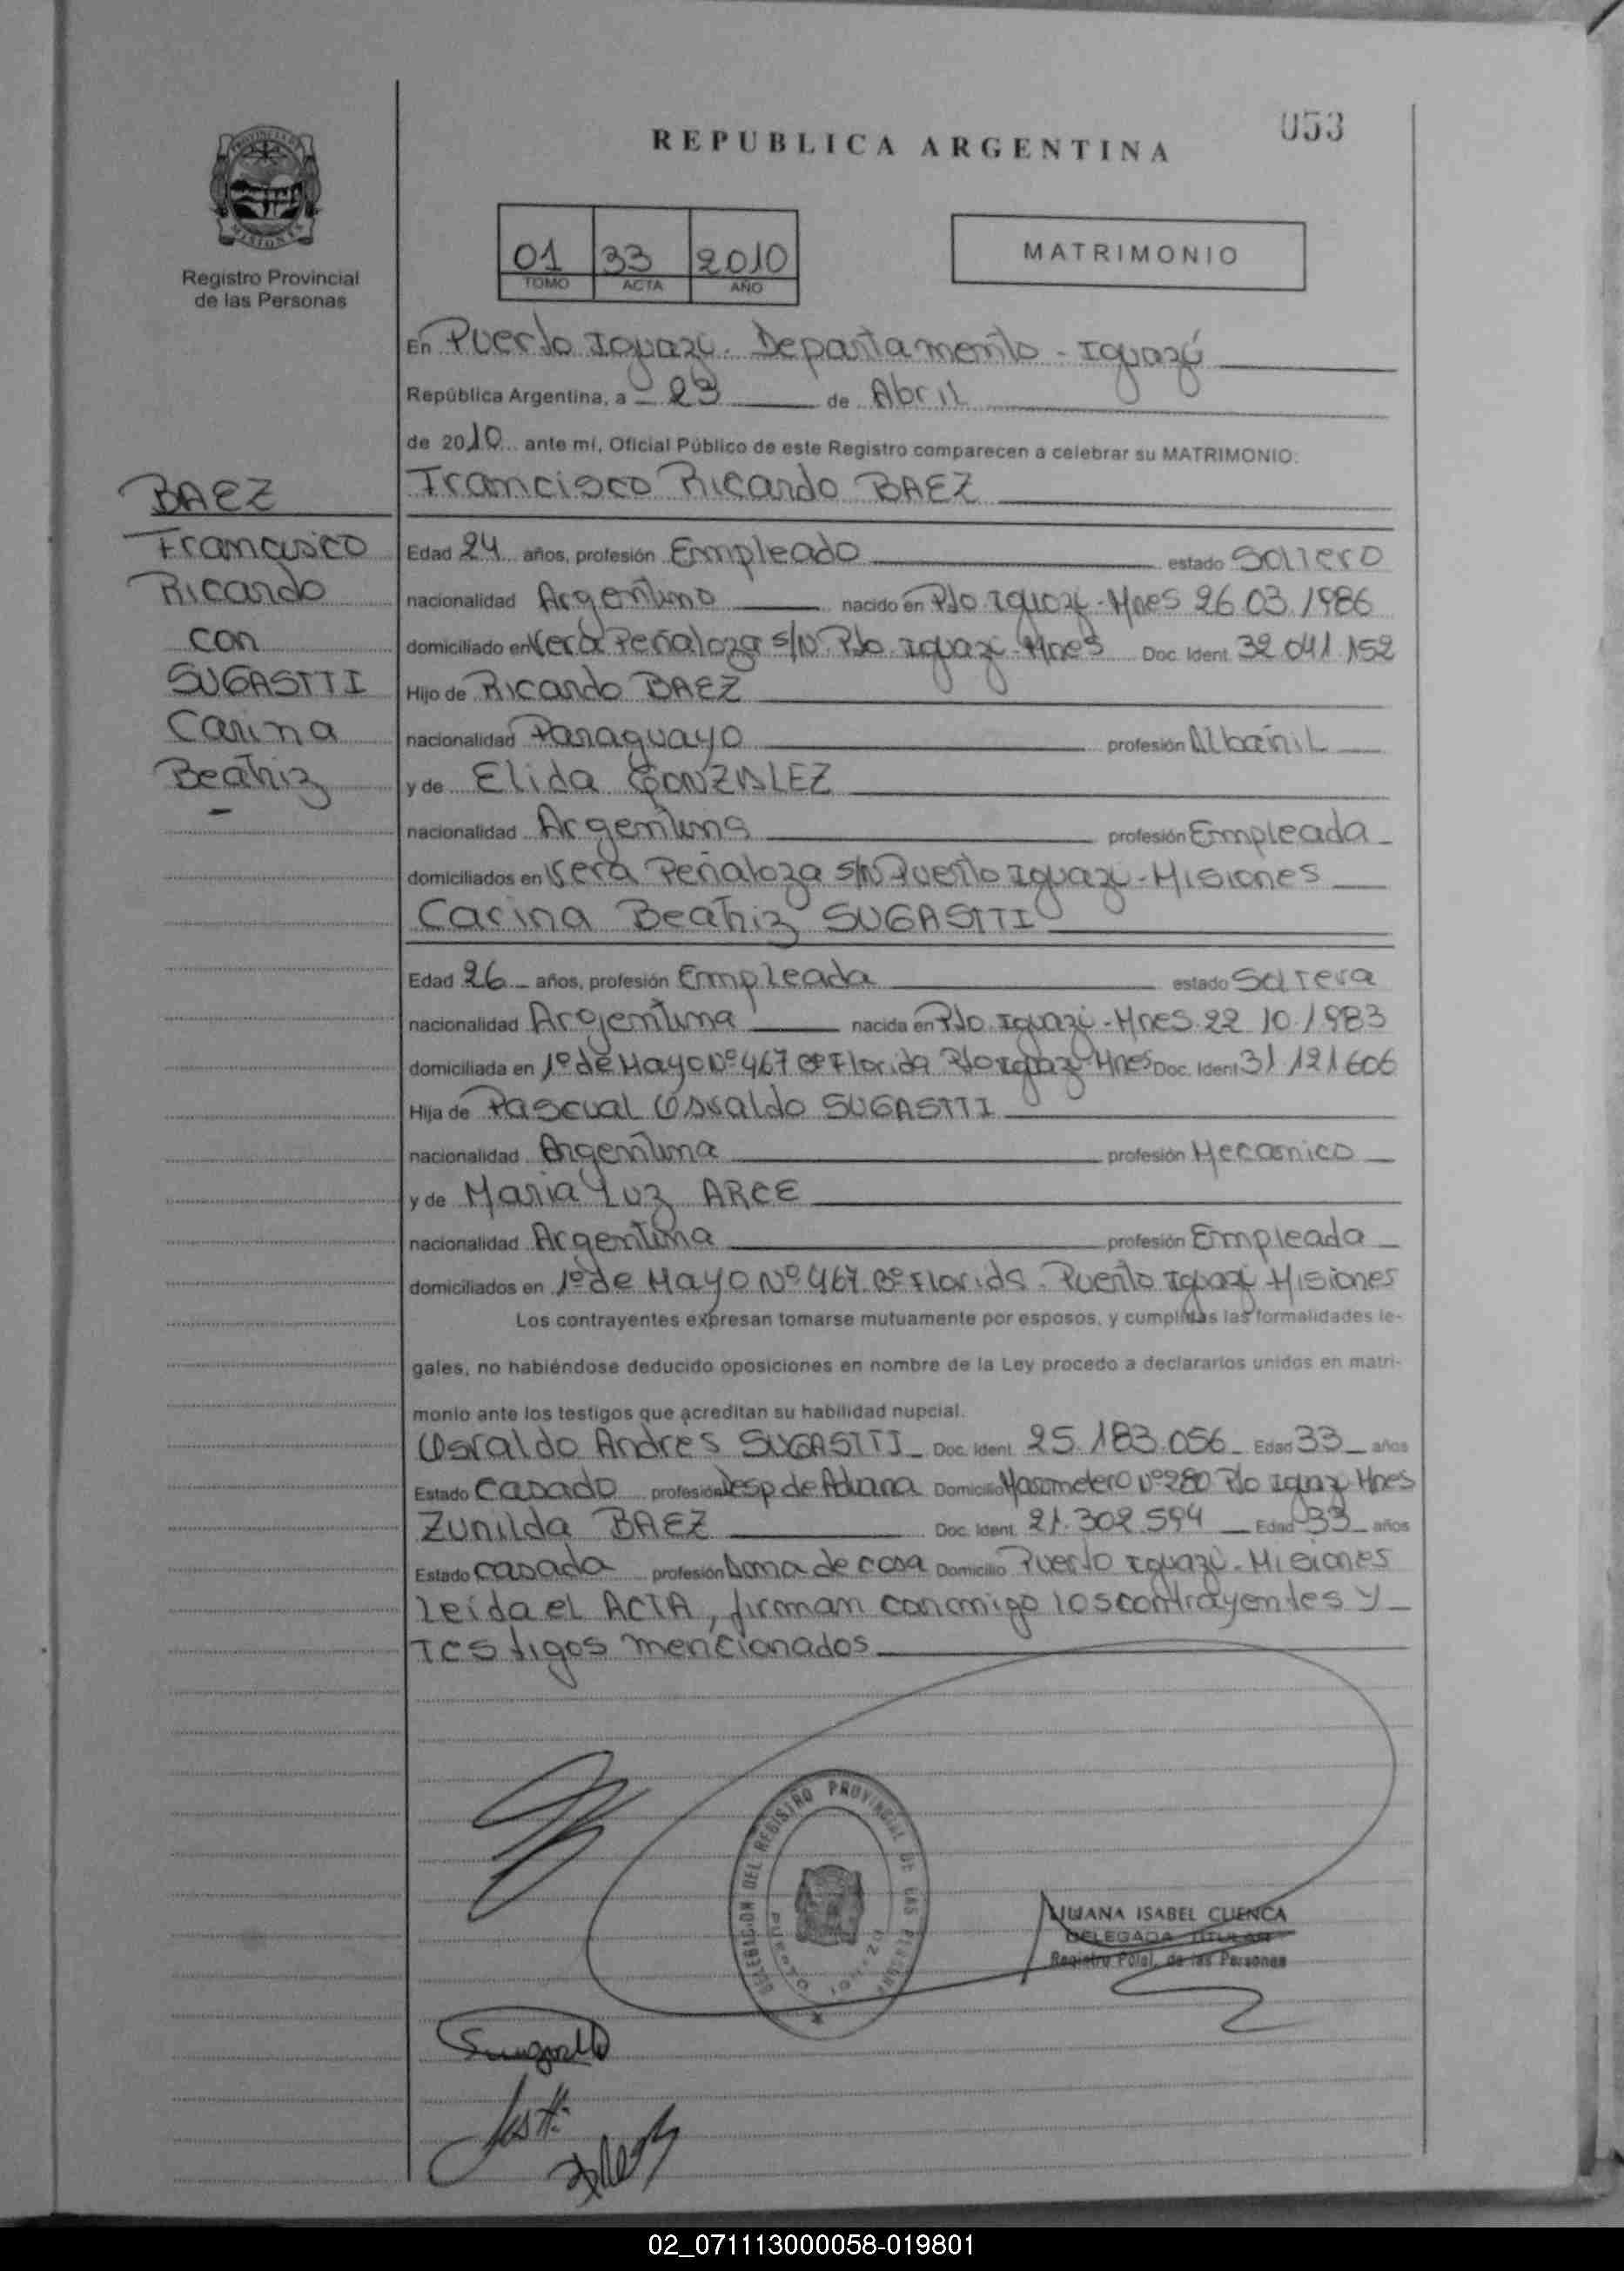 053
REPUBLICA ARGENTINA
PROVINCIA DE
MISIONES
Registro Provincial
de las Personas
01 33 2010
TOMO ACTA AÑO
MATRIMONIO
En Puerto Iguazú. Departamento - Iguazú
República Argentina, a 23 de Abril
de 2010 ante mí, Oficial Público de este Registro comparecen a celebrar su MATRIMONIO:
Francisco Ricardo BAEZ
BAEZ
Francisco
Ricardo
con
SUGASTTI
Carina
Beatriz
Edad 24 años, profesión Empleado estado Soltero
nacionalidad Argentino nacido en Pto Iguazú - Mnes 26.03.1986
domiciliado en Vera Peñaloza s/N Pto. Iguazú - Mnes Doc. Ident. 32.041.152
Hijo de Ricardo BAEZ
nacionalidad Paraguayo profesión Albañil
y de Elida GONZALEZ
nacionalidad Argentina profesión Empleada
domiciliados en Vera Peñaloza s/N Puerto Iguazú - Misiones
Carina Beatriz SUGASTTI
Edad 26 años, profesión Empleada estado Soltera
nacionalidad Argentina nacida en Pto. Iguazú - Mnes. 22.10.1983
domiciliada en 1º de Mayo Nº 467 Bº Florida Pto Iguazú - Mnes Doc. Ident 31.121.606
Hija de Pascual Osvaldo SUGASTTI
nacionalidad Argentina profesión Mecanico
y de Maria Luz ARCE
nacionalidad Argentina profesión Empleada
domiciliados en 1º de Mayo Nº 467. Bº Florida. Puerto Iguazú Misiones
Los contrayentes expresan tomarse mutuamente por esposos, y cumplidas las formalidades le-
gales, no habiéndose deducido oposiciones en nombre de la Ley procedo a declararlos unidos en matri-
monio ante los testigos que acreditan su habilidad nupcial.
Osvaldo Andres SUGASTTI Doc. Ident. 25.183.056 Edad 33 años
Estado Casado profesión Desp. de Aduana Domicilio Nº 280 Pto Iguazú Mnes
Zunilda BAEZ Doc. Ident. 21.302.594 Edad 33 años
Estado Casada profesión Ama de casa Domicilio Puerto Iguazú - Misiones
Leída el ACTA, firman conmigo los contrayentes y
Testigos mencionados
DEL REGISTRO PROVINCIAL DE LAS PERSONAS
LILIANA ISABEL CUENCA
DELEGADA TITULAR
Registro Pcial. de las Personas
02_071113000058-019801